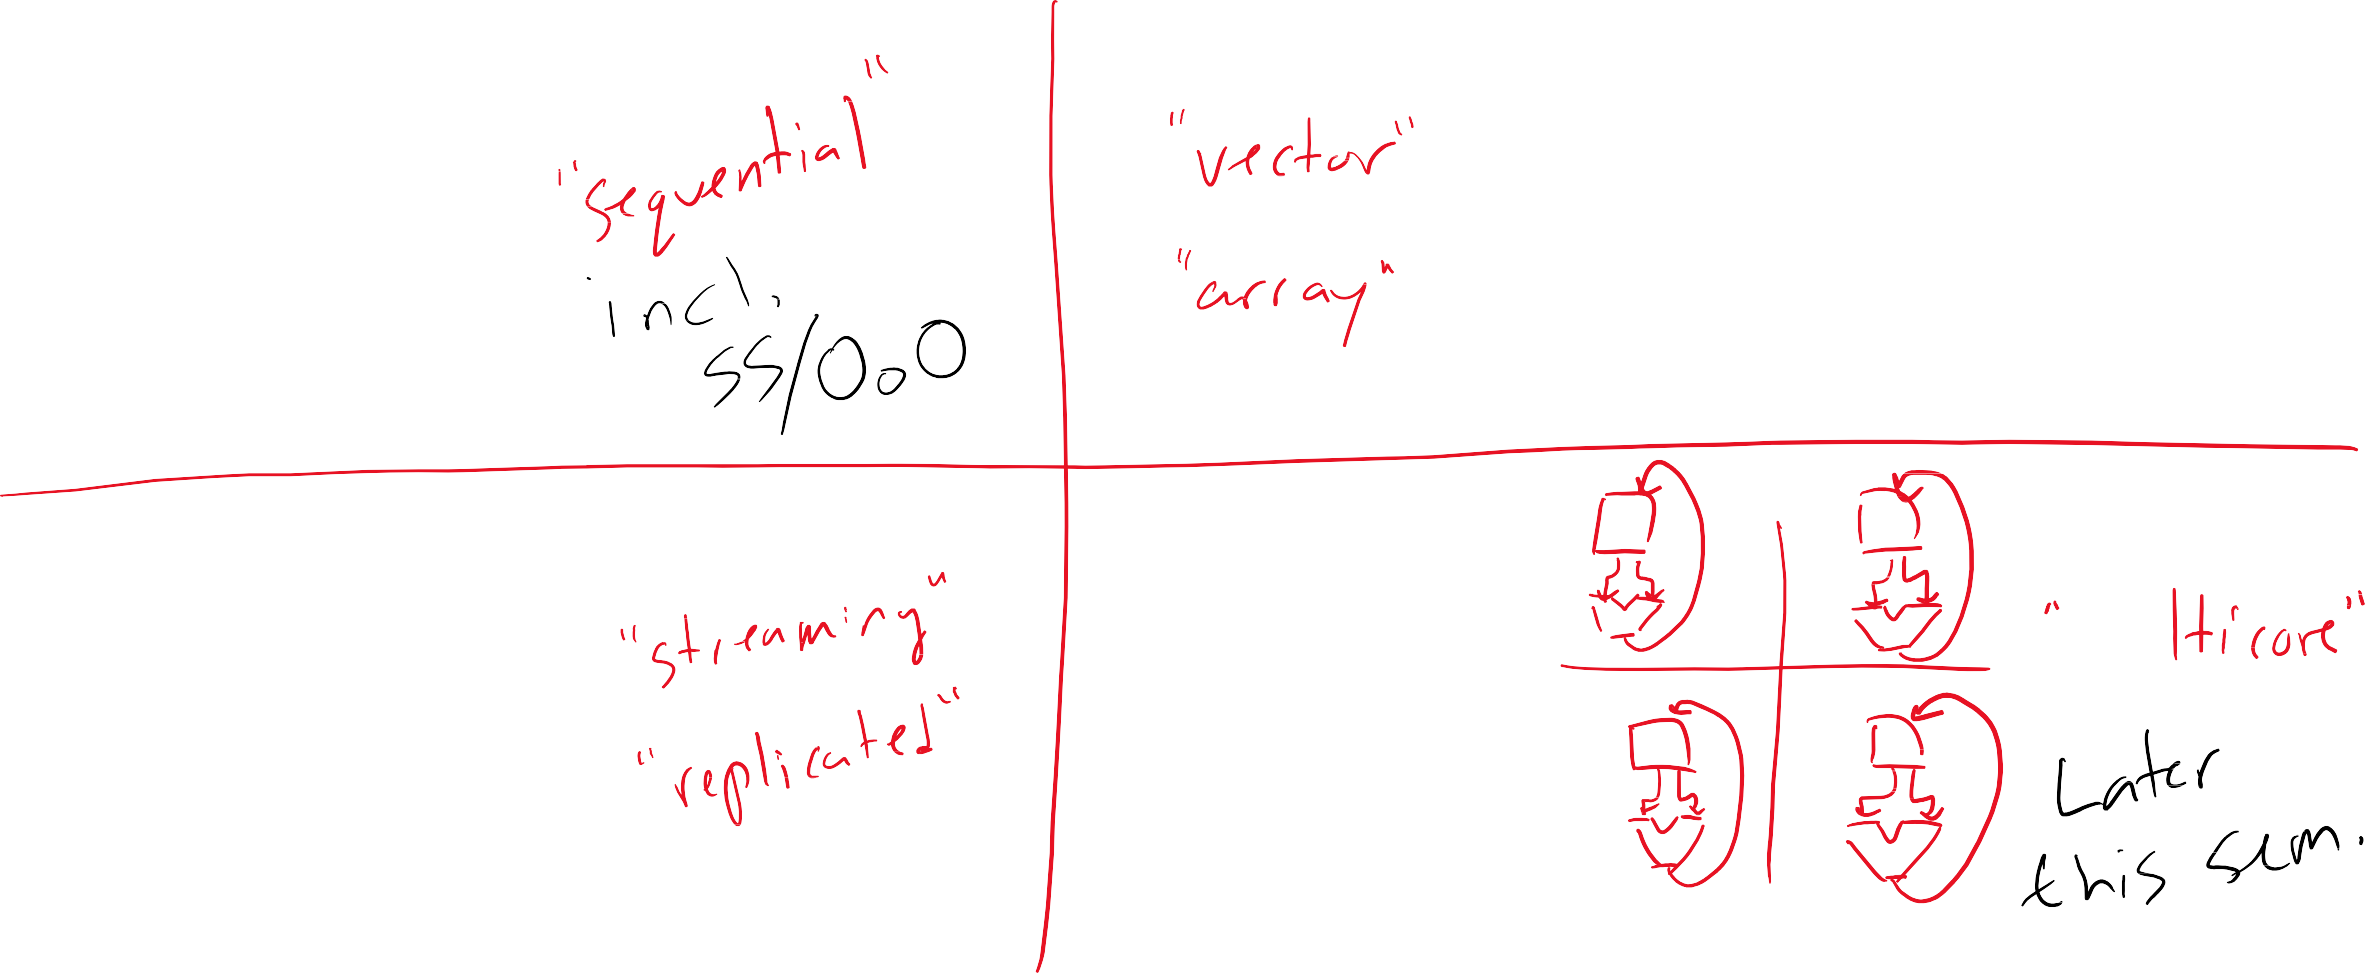 "sequential"
incl.
SS/OoO
"vector"
"array"
"streaming"
"replicated"
" lticore"
Later
this sem.